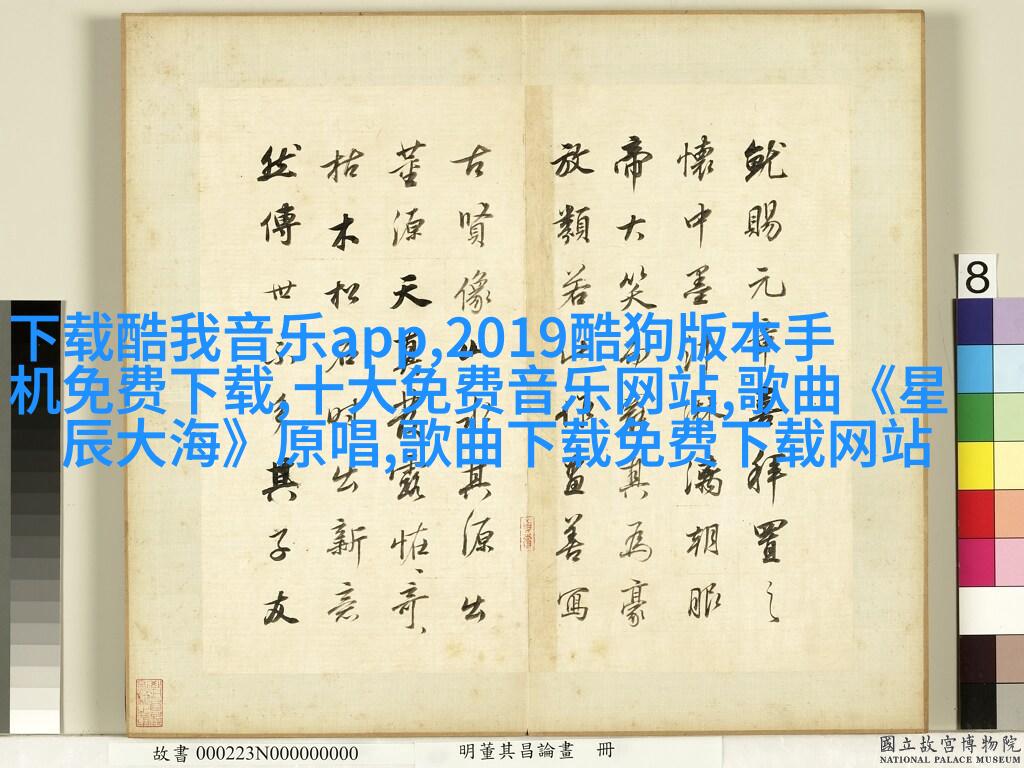 下载酷我音乐app,2019酷狗版本手
机免费下载,十大免费音乐网站,歌曲《星
辰大海》原唱,歌曲下载免费下载网站
就賜元章喜拜置之
懷中墨汁淋漓朝服
帝大笑而罷其為豪
放類若此畫善寫
古賢像山水其源出
董源天真發露怪奇
枯木松石時出新意
然傳世不多其子友
8
故書 000223N000000000
明董其昌論畫 冊
國立故宮博物院
NATIONAL PALACE MUSEUM